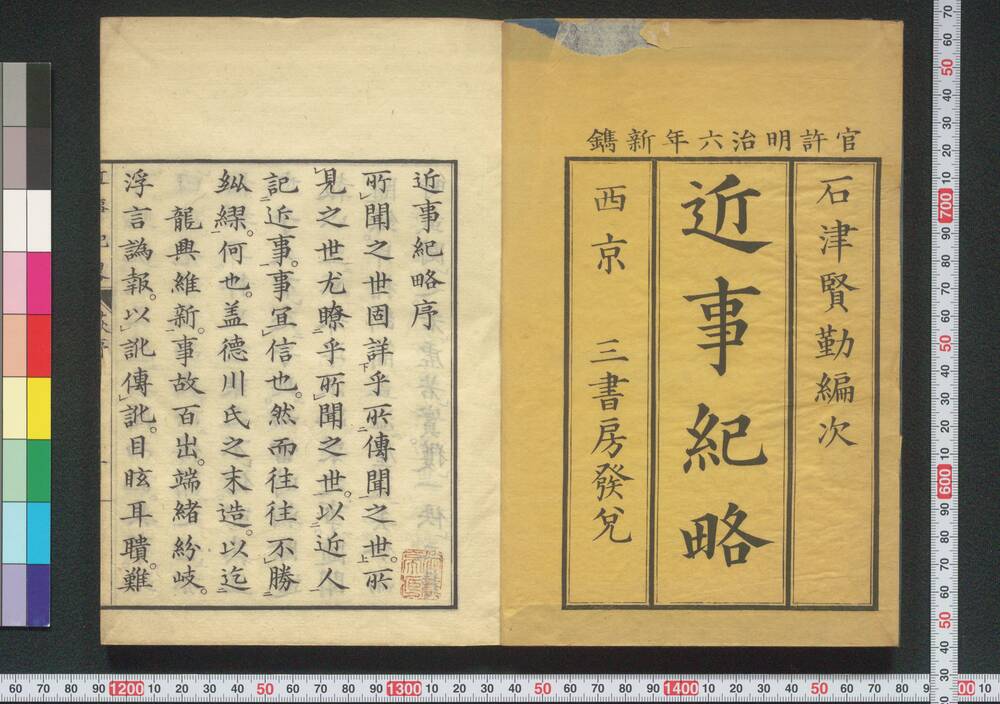 官許明治六年新鐫
石津賢勤編次
近事紀略
西京 三書房發兌
近事紀略序
所聞之世固詳乎所傳聞之世。所
見之世尤瞭乎所聞之世。以近人
記近事。事宜信也。然而往往不勝
紕繆。何也。盖德川氏之末造。以迄
龍興維新。事故百出。端緒紛岐。
浮言譌報。以訛傳訛。目眩耳聵。難